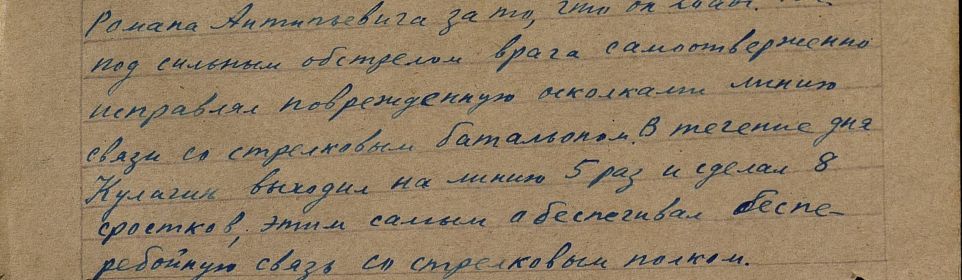 Романа Антипьевича за то, что он
под сильным обстрелом врага самоотверженно
исправлял поврежденную осколками линию
связи со стрелковым батальоном. В течение дня
Кулагин выходил на линию 5 раз и сделал 8
сростков, этим самым обеспечивал беспе-
ребойную связь со стрелковым полком.